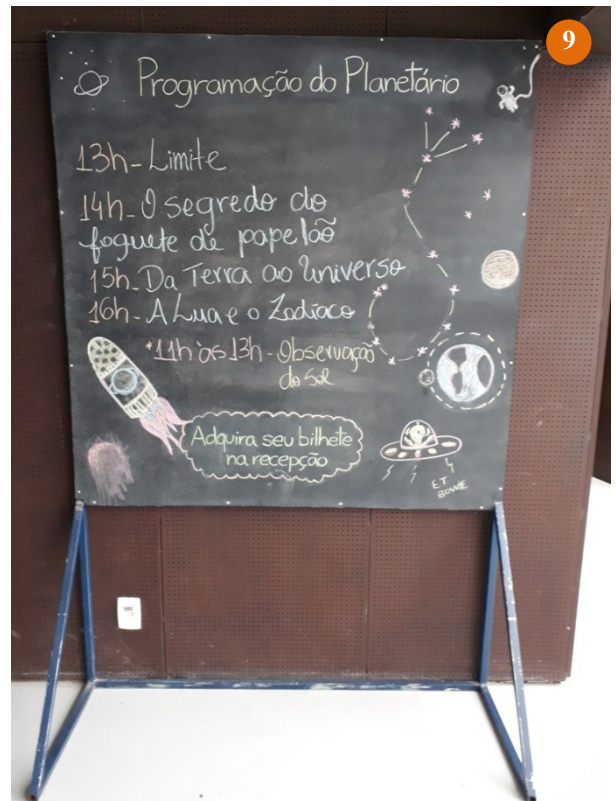 9
Programação do Planetário
13h - Limite
14h - O segredo do
foguete de papelão
15h - Da Terra ao Universo
16h - A Lua e o Zodíaco
*11h às 13h - Observação
do Sol
Adquira seu bilhete
na recepção
E.T.
BOWIE